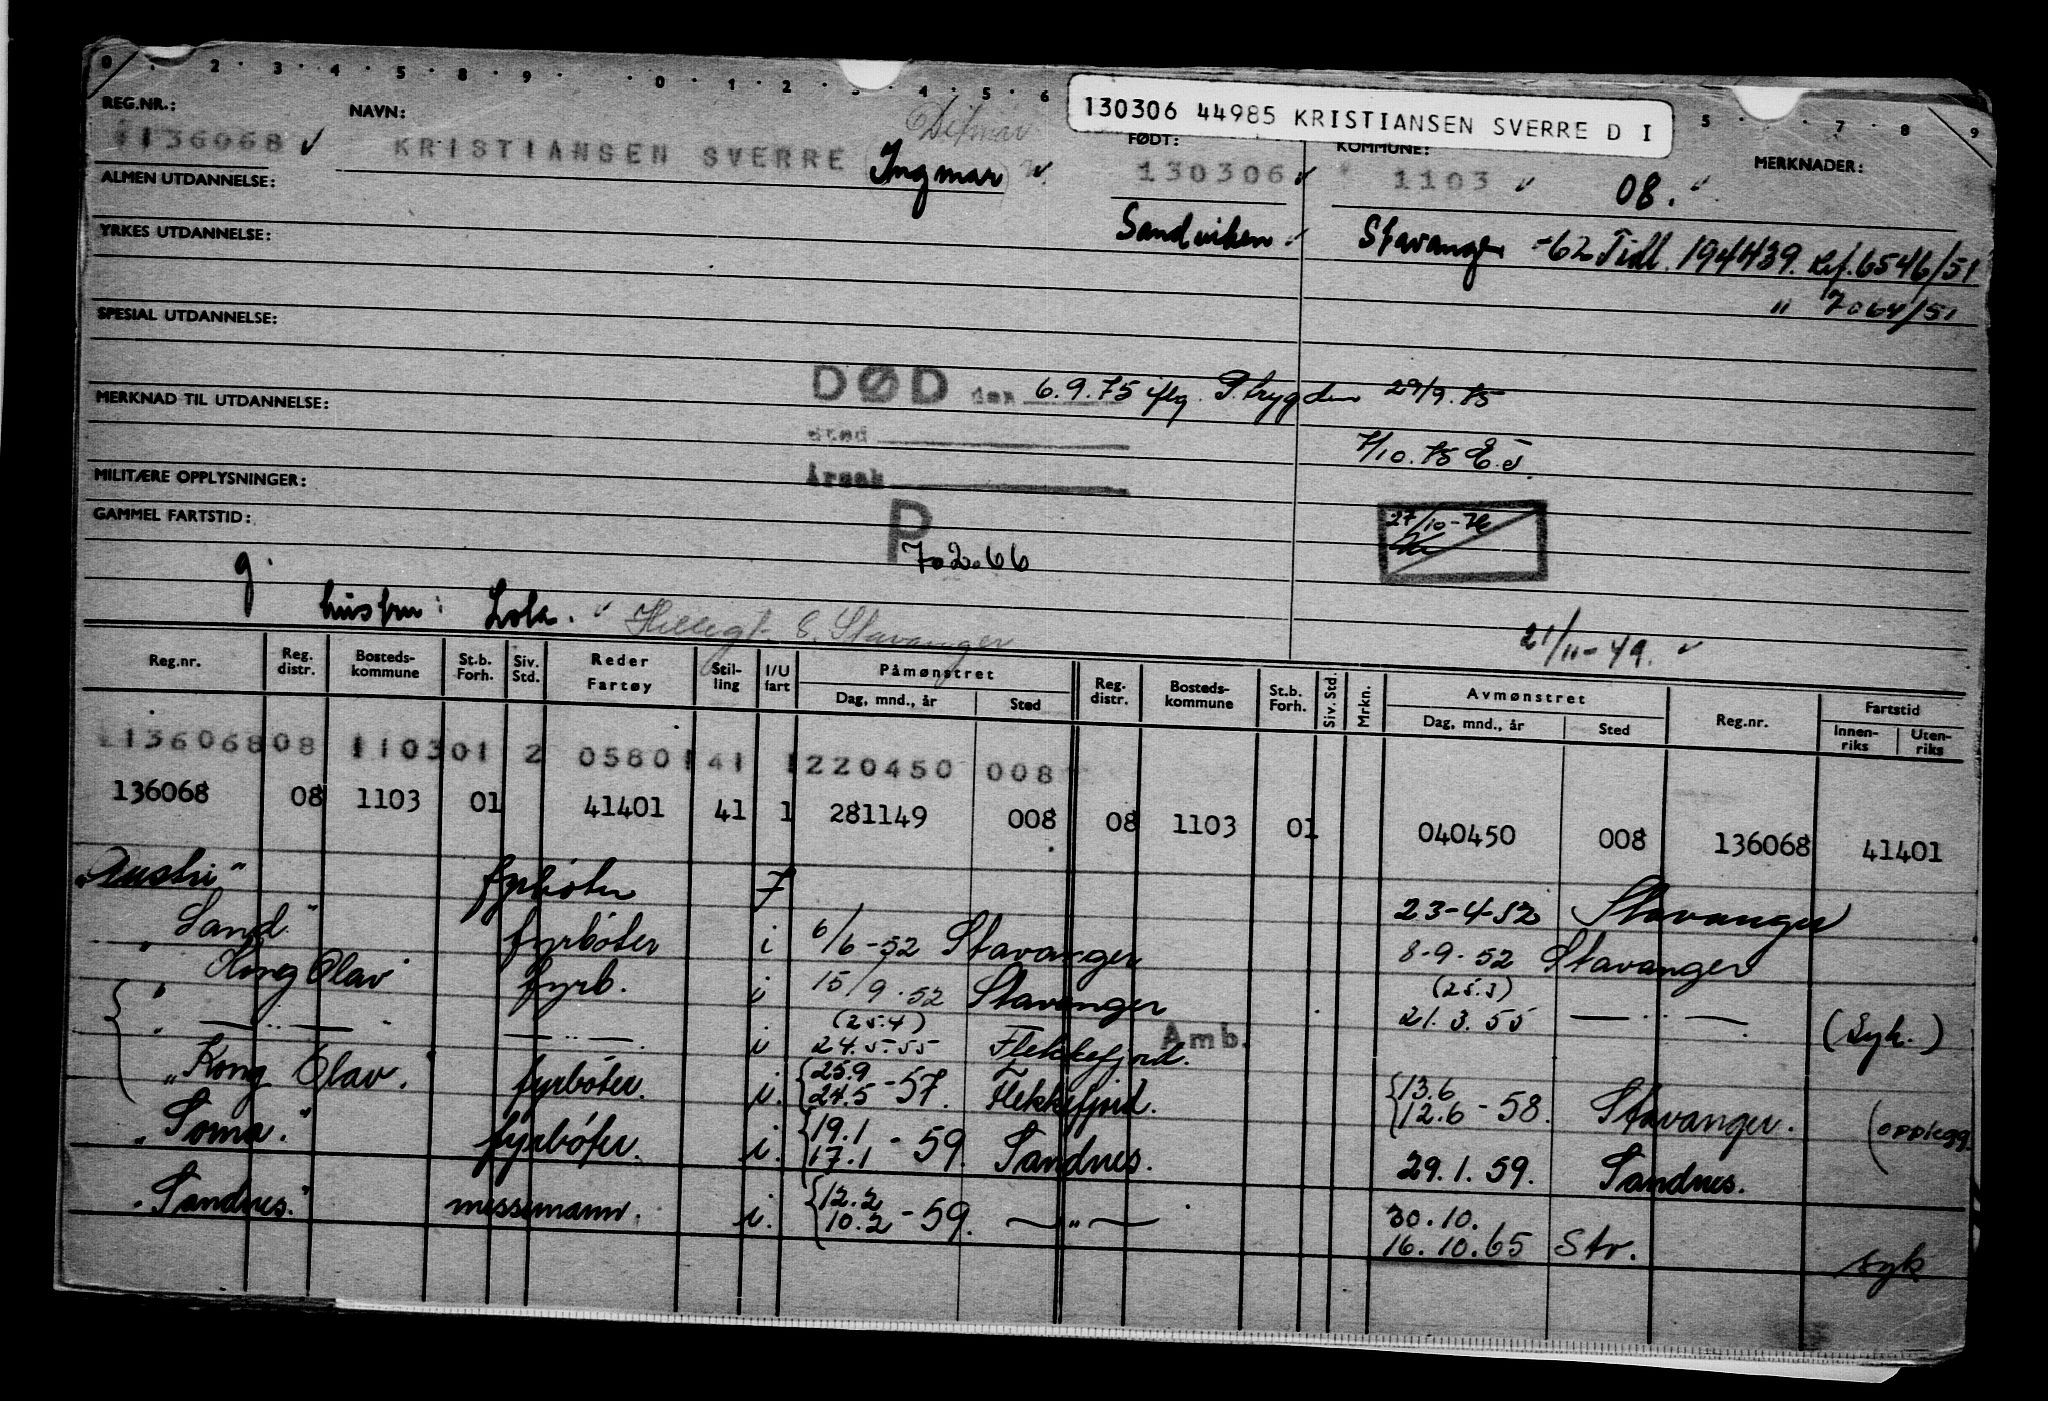 0 . 2 . 3 . 4 . 5 . 8 . 9 . 0 . 1 . 2 . 3 . 4 . 5 . 6 5 . 7 . 8 . 9
130306 44985 KRISTIANSEN SVERRE D I
REG.NR.: NAVN: Ditmar FØDT: KOMMUNE: MERKNADER:
136068 ✓ KRISTIANSEN SVERRE (Ingmar) 130306 ✓ 1103 ✓ 08. ✓
ALMEN UTDANNELSE:
YRKES UTDANNELSE: Sandviken Stavanger -62 Tidl. 194439. Ref. 6546/51
" 7064/51
SPESIAL UTDANNELSE:
DØD den 6.9.75 iflg. P.trygden 29/9.75
MERKNAD TIL UTDANNELSE:
Sted
7/10.75
MILITÆRE OPPLYSNINGER: Årsak
GAMMEL FARTSTID: P 27/10-76
7.2.66
g.
hustru: Lola. ✓ Hillegt. 8. Stavanger 21/11-49. ✓
Reg.nr. Reg. distr. Bosteds-kommune St.b. Forh. Siv. Std. Reder Fartøy Stil-ling I/U fart Påmønstret Dag, mnd., år Sted Reg. distr. Bosteds-kommune St.b. Forh. Siv. Std. Mrkn. Avmønstret Dag, mnd., år Sted Reg.nr. Fartstid Innen-riks Uten-riks
136068 08 1103 01 2 05801 41 1 220450 008
136068 08 1103 01 41401 41 1 281149 008 08 1103 01 040450 008 136068 41401
"Austri" fyrbøter 23-4-52 Stavanger
"Sand" fyrbøter i 6/6-52 Stavanger 8-9-52 Stavanger
"Kong Olav" fyrb. i 15/9-52 Stavanger (25.3) 21.3.55 — " — (Syk.)
" — " — — " — i (25.4) 24.5.55 Flekkefjord. Amb.
"Kong Olav." fyrbøter. i. {25.9 24.5 -57. Flekkefjord. {13.6 12.6 -58. Stavanger. (opplegg.
"Soma." fyrbøter. i. {19.1 17.1 -59. Sandnes. 29.1.59. Sandnes.
"Sandnes." messemann. i. {12.2 10.2 -59. — " — 30.10. 16.10.65 Stv. syk